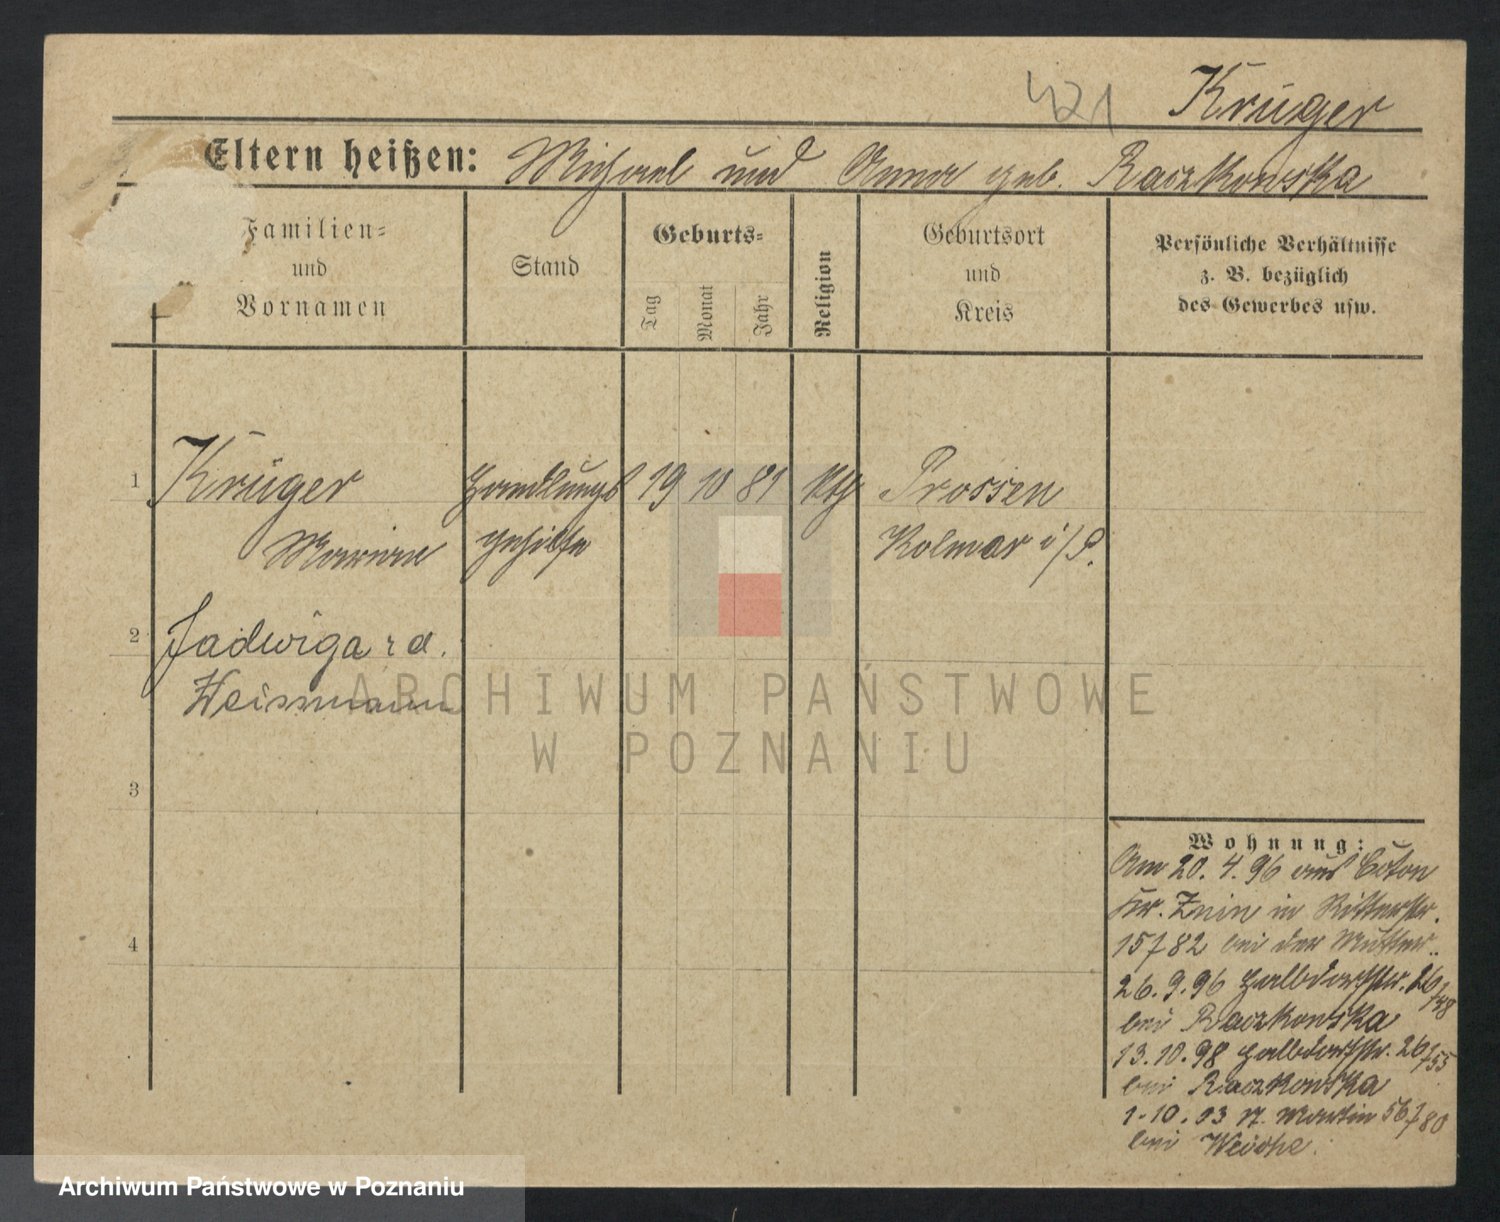 421 Krüger
Eltern heißen: Michael und Anna geb. Raczkowska
Familien=
und
Vornamen
Stand
Geburts=
Tag
Monat
Jahr
Religion
Geburtsort
und
Kreis
Persönliche Verhältnisse
z. B. bezüglich
des Gewerbes usw.
1 Krüger Handlungs 19 10 81 kth Prossen
Marian gehilfe Kolmar i/P.
2 Jadwiga
Weissmann
3
4
Wohnung:
Am 20. 4. 96 aus
Kr. Znin in Ritterstr.
15/82 bei der Mutter.
26. 9. 96 Halbdorfstr. 26/48
bei Raczkowska
13. 10. 98 Halbdorfstr. 26/55
bei Raczkowska
1. 10. 03 St. Martin 56/80
bei
ARCHIWUM PAŃSTWOWE
W POZNANIU
Archiwum Państwowe w Poznaniu